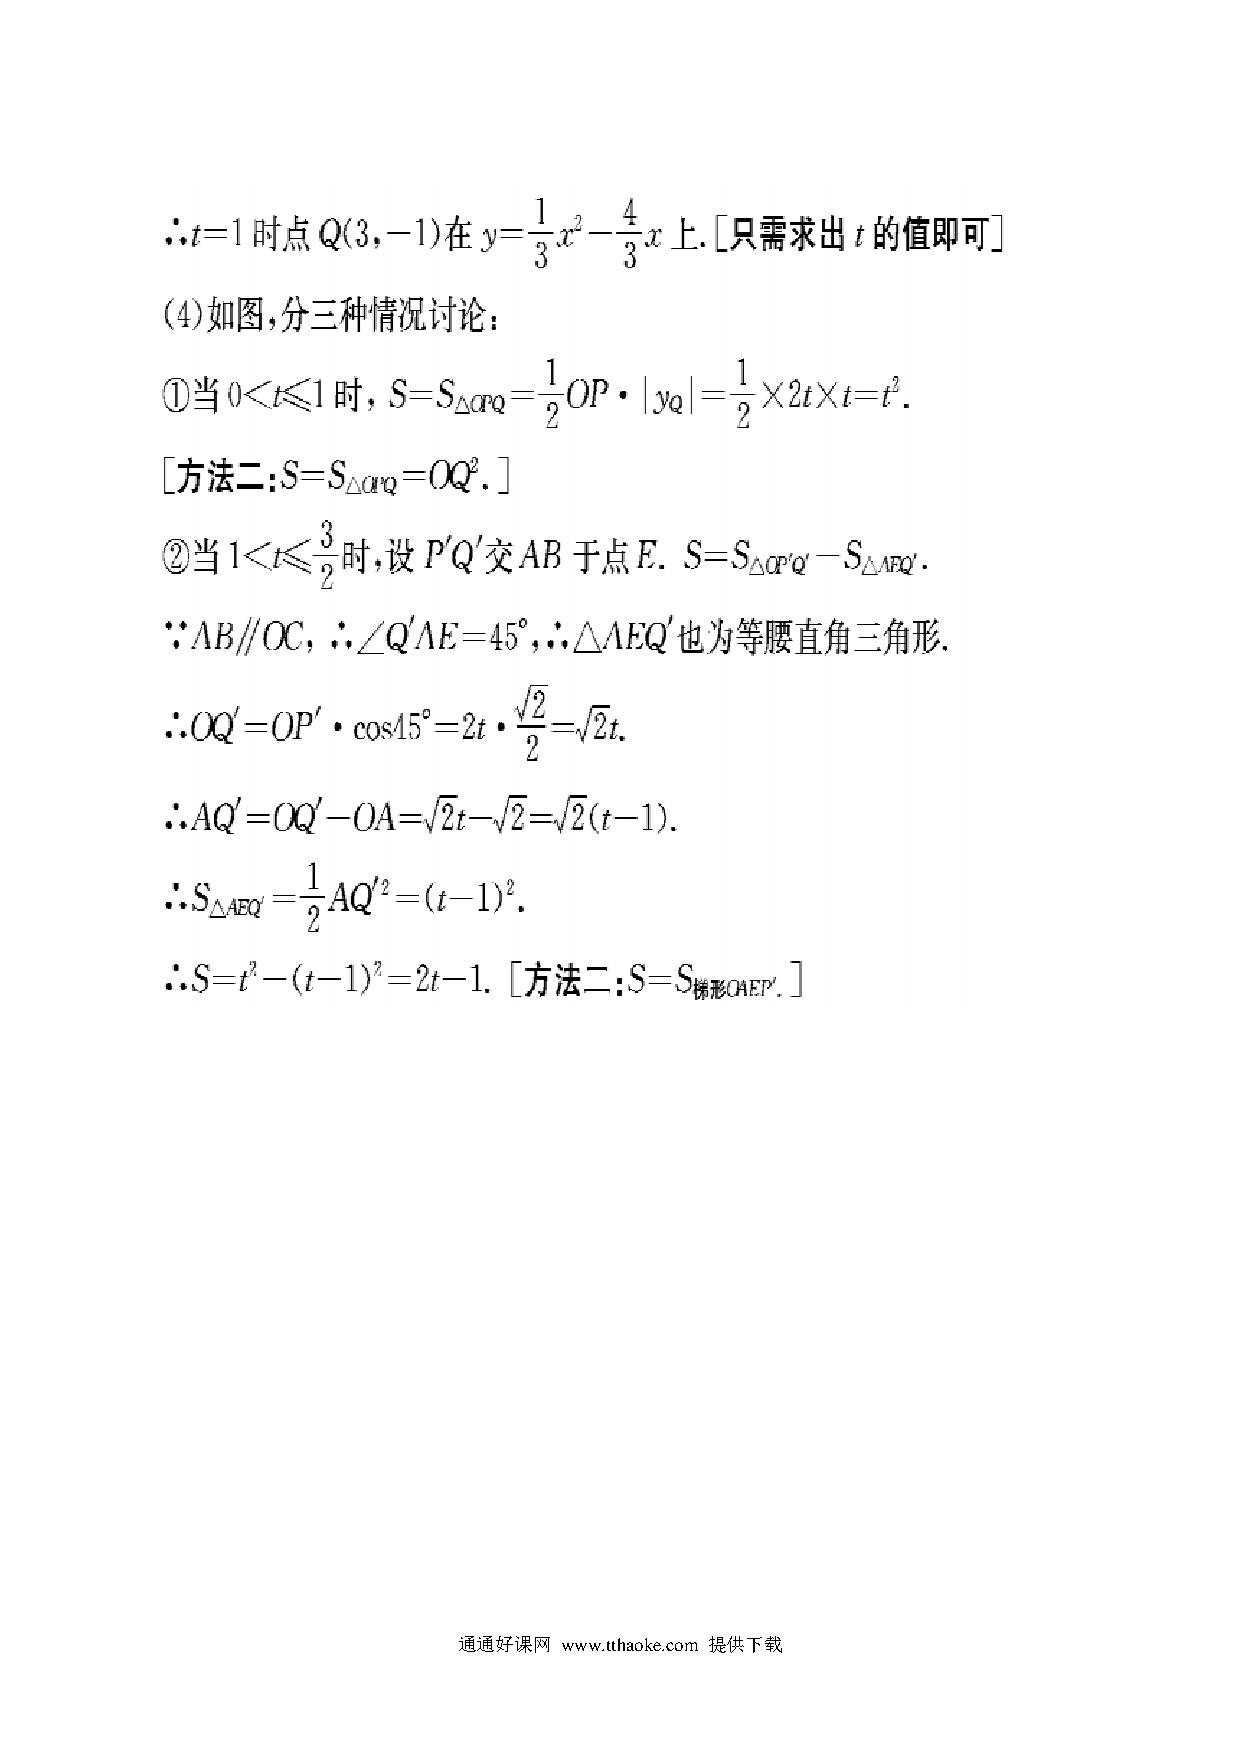 ∴t=1时点Q(3,-1)在y=1/3x²-4/3x上.[只需求出t的值即可]
(4)如图,分三种情况讨论:
①当0<t≤1时, S=S△OPQ=1/2OP·|yQ|=1/2×2t×t=t².
[方法二:S=S△OPQ=OQ².]
②当1<t≤3/2时,设P′Q′交AB于点E. S=S△OP′Q′-S△AEQ′.
∵AB∥OC, ∴∠Q′AE=45°,∴△AEQ′也为等腰直角三角形.
∴OQ′=OP′·cos45°=2t·√2/2=√2t.
∴AQ′=OQ′-OA=√2t-√2=√2(t-1).
∴S△AEQ′=1/2AQ′²=(t-1)².
∴S=t²-(t-1)²=2t-1. [方法二:S=S梯形OAEP′.]
通通好课网 www.tthaoke.com 提供下载